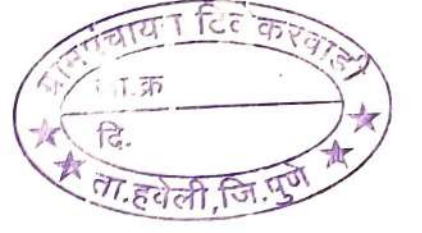 ग्रामपंचायत टिळेकरवाडी
जा.क्र
दि.
ता.हवेली,जि.पुणे